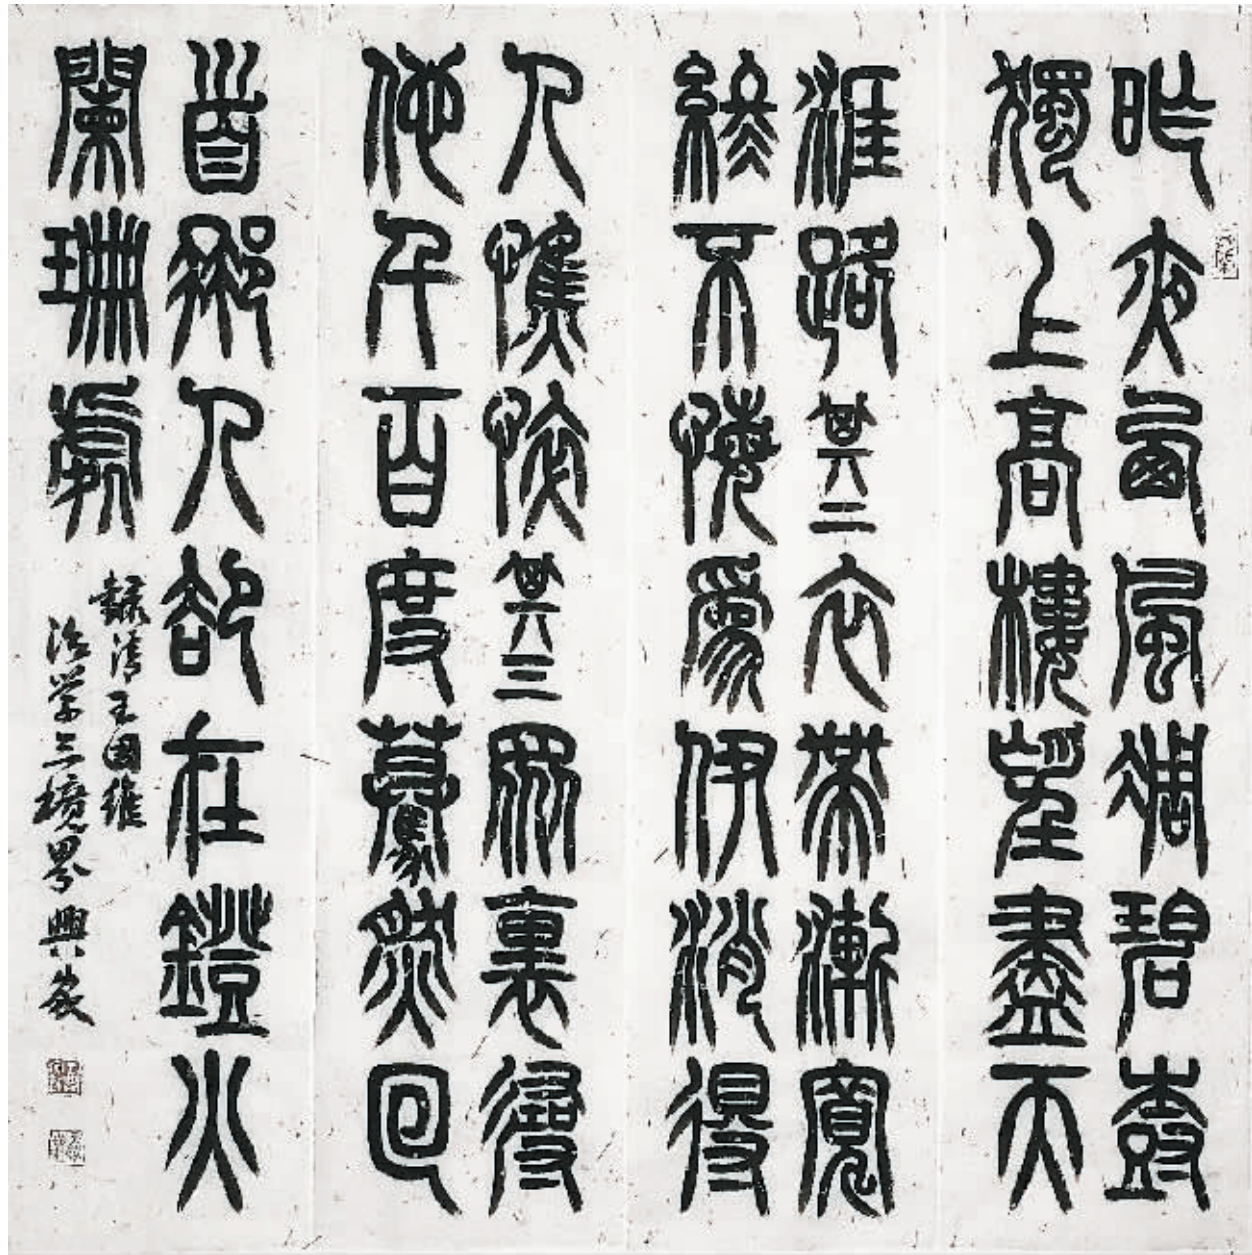 昨夜西風凋碧尌
獨上高樓望盡天
涯路其二衣帶漸寬
終不悔爲伊消得
人憔悴其三眾裏尋
他千百度驀然回
首那人卻在鐙火
闌珊處
錄清王國維
治学三境界興